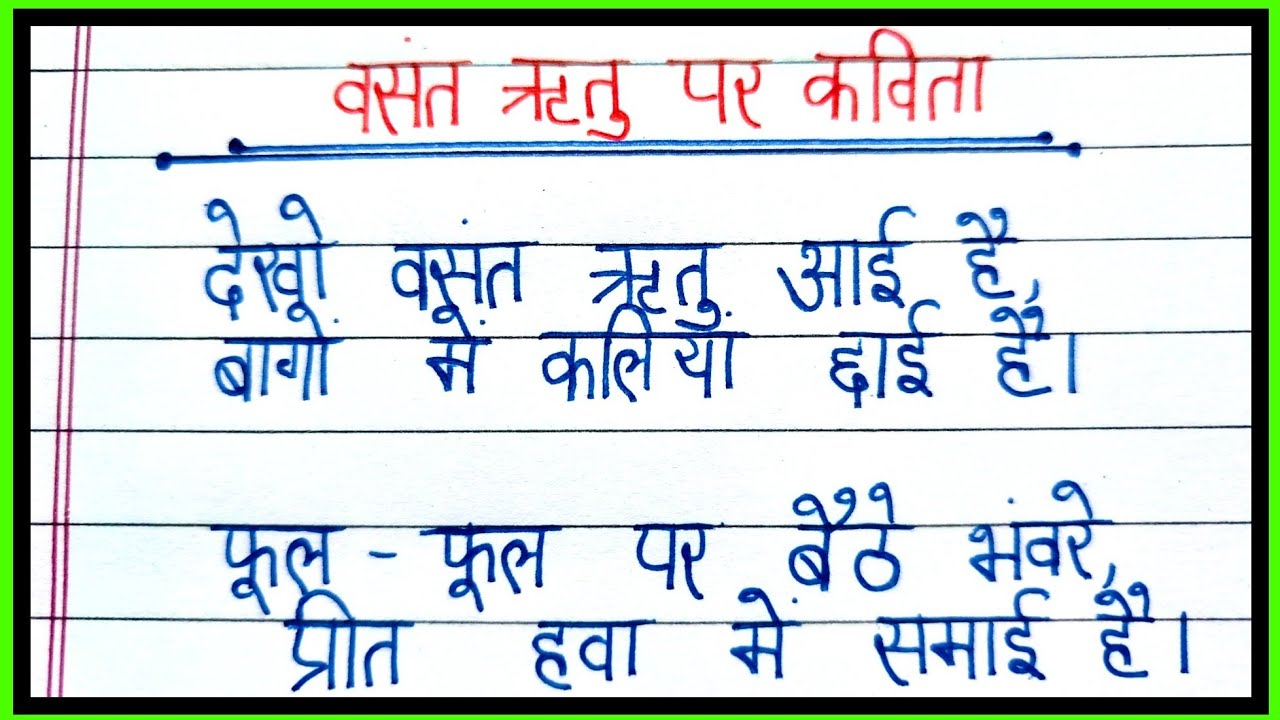 वसंत ऋतु पर कविता
देखो वसंत ऋतु आई है,
बागों में कलिया छाई है।
फूल - फूल पर बैठे भंवरे,
प्रीत हवा में समाई है।